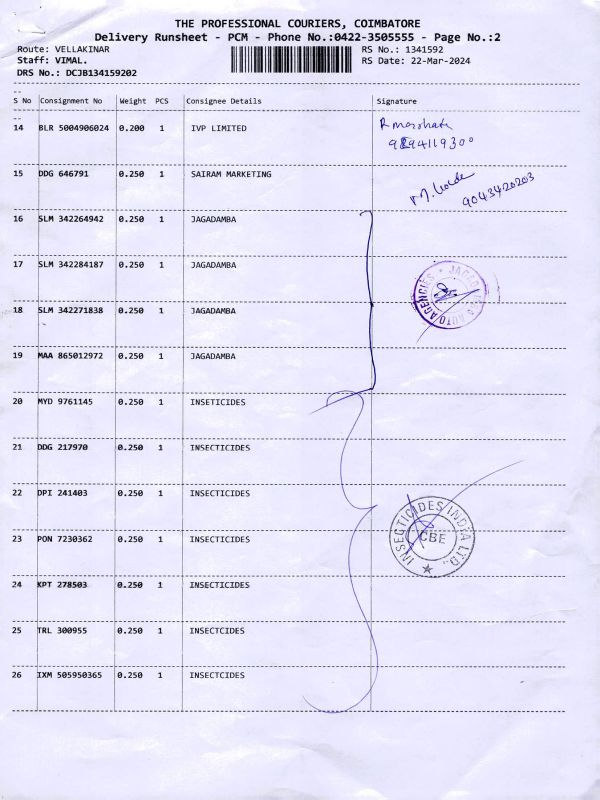 THE PROFESSIONAL COURIERS, COIMBATORE
Delivery Runsheet - PCM - Phone No.:0422-3505555 - Page No.:2
Route: VELLAKINAR
Staff: VIMAL.
DRS No.: DCJB134159202
RS No.: 1341592
RS Date: 22-Mar-2024
S No Consignment No Weight PCS Consignee Details Signature
14 BLR 5004906024 0.200 1 IVP LIMITED
15 DDG 646791 0.250 1 SAIRAM MARKETING
9043420203
16 SLM 342264942 0.250 1 JAGADAMBA
17 SLM 342284187 0.250 1 JAGADAMBA
18 SLM 342271838 0.250 1 JAGADAMBA
19 MAA 865012972 0.250 1 JAGADAMBA
20 MYD 9761145 0.250 1 INSETICIDES
21 DDG 217970 0.250 1 INSECTICIDES
22 DPI 241403 0.250 1 INSECTICIDES
23 PON 7230362 0.250 1 INSECTICIDES
INSECTICIDES INDIA LTD.,
CBE
24 KPT 278503 0.250 1 INSECTICIDES
25 TRL 300955 0.250 1 INSECTCIDES
26 IXM 505950365 0.250 1 INSECTCIDES